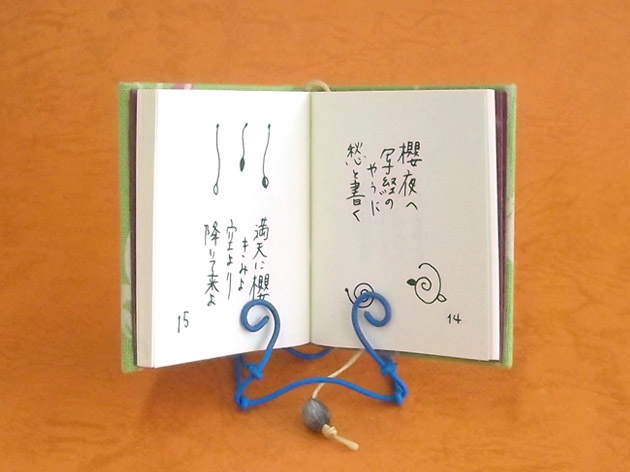 櫻夜へ
写経の
やうに
愁と書く
14
満天に櫻
きみよ
空より
降りて来よ
15